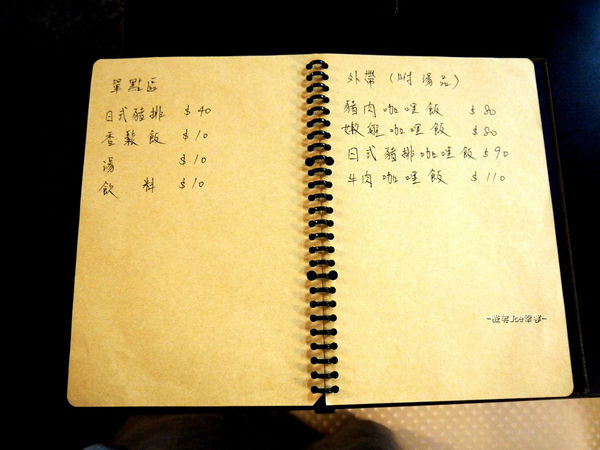 單點區
日式豬排 $40
香鬆飯 $10
湯 $10
飲料 $10
外帶（附湯品）
豬肉咖哩飯 $80
嫩雞咖哩飯 $80
日式豬排咖哩飯 $90
牛肉咖哩飯 $110